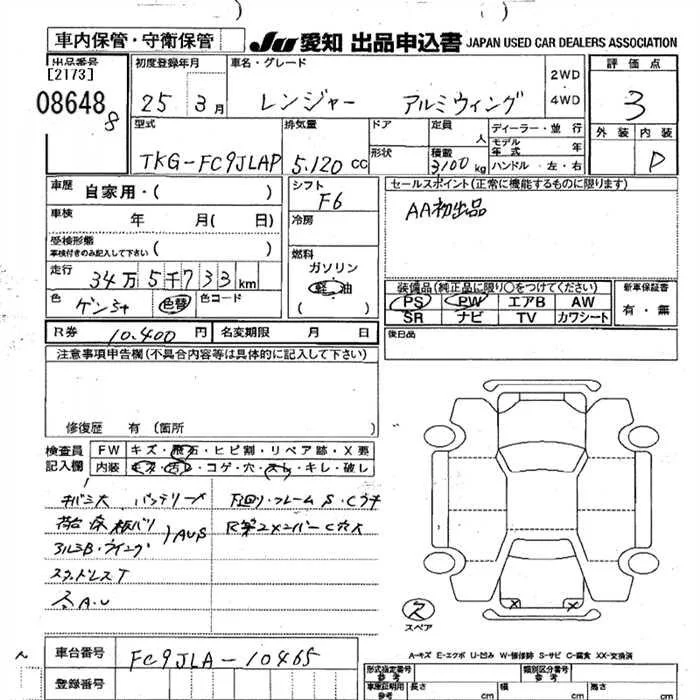 車内保管・守衛保管
JU 愛知 出品申込書 JAPAN USED CAR DEALERS ASSOCIATION
出品番号
[2173]
08648
8
初度登録年月
25年 3月
車名・グレード
レンジャー アルミウィング
2WD
・
4WD
評価点
3
外装 内装
D
型式
TKG-FC9JLAP
排気量
5.120 cc
ドア
形状
定員
人
積載
3100 kg
ディーラー・並行
モデル
年式 年
ハンドル・左・右
車歴
自家用・( )
車検
年 月(日)
受検形態
車検付きのみ記入して下さい ( )
走行
34万5千733km
色
色替
色コード
シフト
F6
冷房
燃料
ガソリン
軽油
( )
セールスポイント(正常に機能するものに限ります)
AA初出品
装備品(純正品に限り○をつけてください)
PS PW エアB AW
SR ナビ TV カワシート
新車保証書
有・無
後日品
R券 10.400円 名変期限 月 日
注意事項申告欄(不具合内容等は具体的に記入して下さい)
修復歴 有 (箇所
検査員
記入欄
FW キズ・飛石・ヒビ割・リペア跡・X要
内装 キズ・汚レ・コゲ・穴・スレ・キレ・破レ
バッテリー
下回り・フレーム S・C
荷台床板バリ
AUS
アルミB・ウイング
スタッドレスT
A.U
ス
スペア
A-キズ E-エクボ U-凹み W-補修跡 S-サビ C-腐食 XX-交換済
車台番号
FC9JLA-10465
登録番号
型式指定番号
参考
類別区分番号
参考
車庫証明用
参考
長さ cm 幅 cm 高さ cm